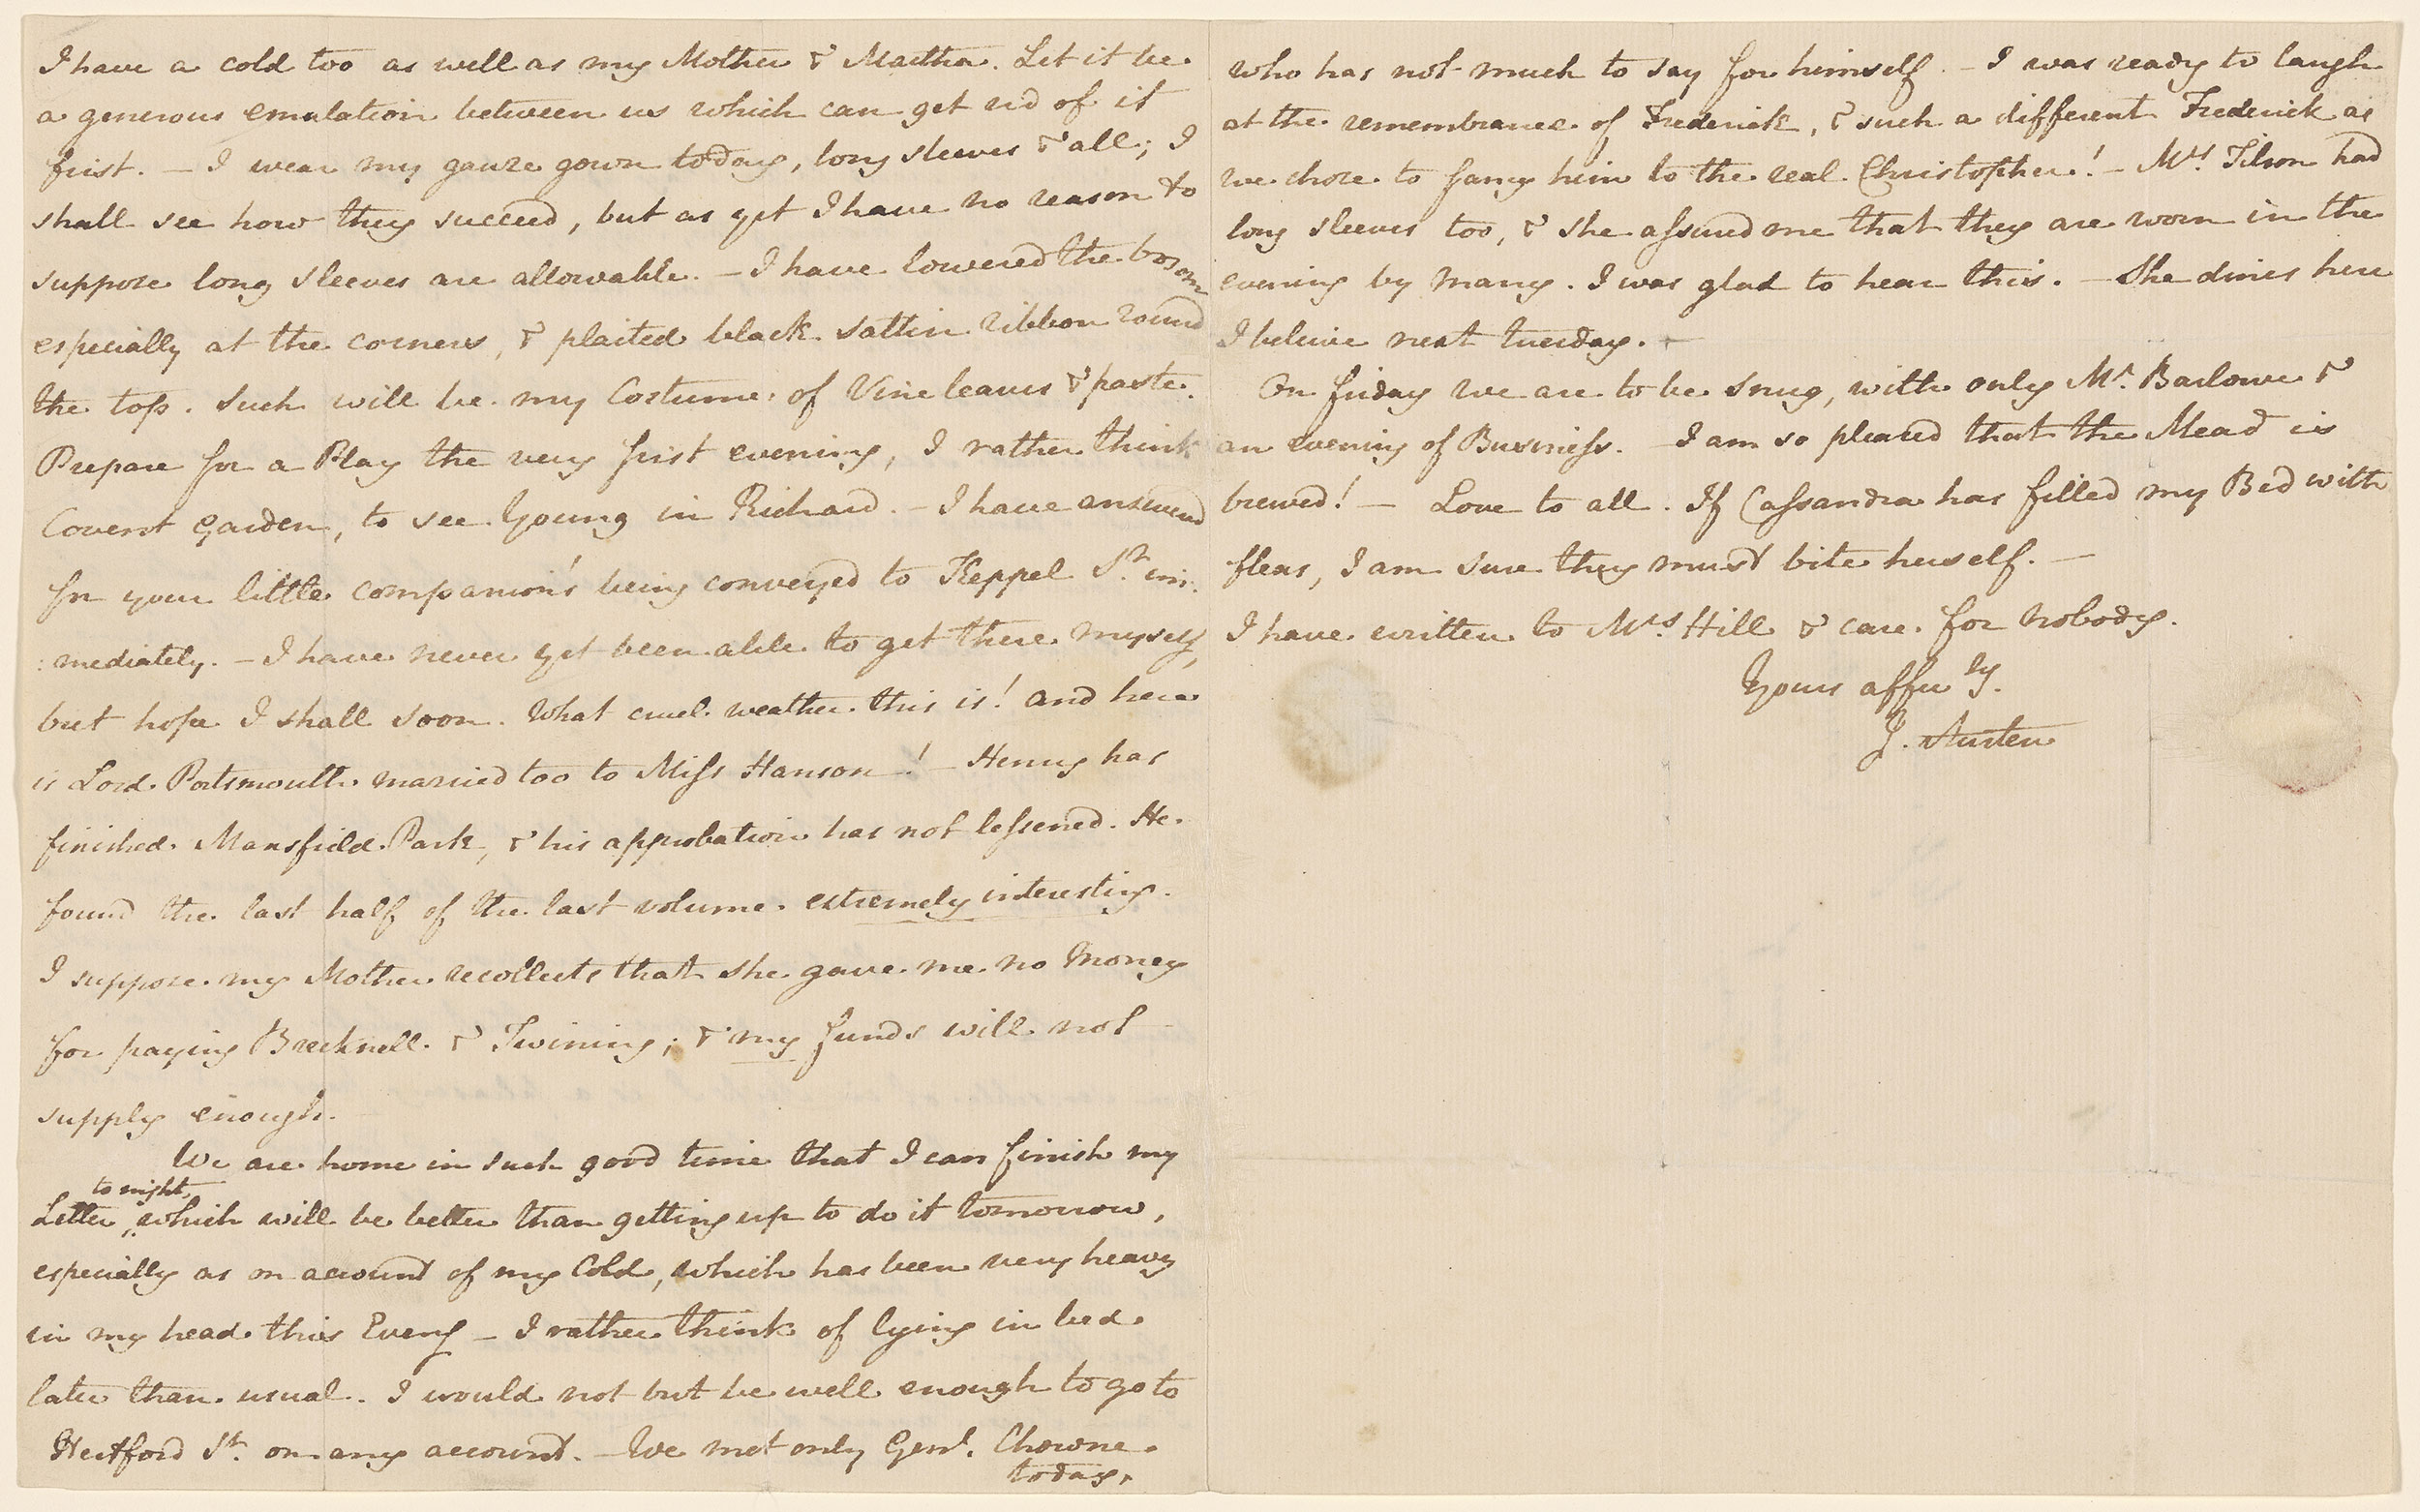 I have a cold too as well as my Mother & Martha. Let it be
a generous emulation between us which can get rid of it
first. – I wear my gauze gown today, long sleeves & all; I
shall see how they succeed, but as yet I have no reason to
suppose long sleeves are allowable. – I have lowered the bosom
especially at the corners, & plaited black sattin ribbon round
the top. Such will be my Costume of Vine leaves & paste.
Prepare for a Play the very first evening, I rather think
Covent Garden, to see Young in Richard. – I have answered
for your little companion's being conveyed to Keppel St. im:
:mediately. – I have never yet been able to get there myself,
but hope I shall soon. What cruel weather this is! and here
is Lord Portsmouth married too to Miss Hanson! – Henry has
finished Mansfield Park, & his approbation has not lessened. He
found the last half of the last volume extremely interesting.
I suppose my Mother recollects that she gave me no Money
for paying Brecknell & Twining; & my funds will not
supply enough.
We are home in such good time that I can finish my
to night,
Letter, which will be better than getting up to do it tomorrow,
especially as on account of my Cold, which has been very heavy
in my head this Eveng – I rather think of lying in bed
later than usual. I would not but be well enough to go to
Hertford St. on any account. – We met only Genl. Chowne
today,
who has not much to say for himself. – I was ready to laugh
at the remembrance of Frederick, & such a different Frederick as
we chose to fancy him to the real Christopher! – Mrs. Tilson had
long sleeves too, & she assured me that they are worn in the
evening by many. I was glad to hear this. – She dines here
I beleive next tuesday. –
On friday we are to be snug, with only Mr. Barlowe &
an evening of Business. – I am so pleased that the Mead is
brewed! – Love to all. If Cassandra has filled my Bed with
fleas, I am sure they must bite herself. –
I have written to Mrs. Hill & care for nobody.
Yours affecly.
J. Austen